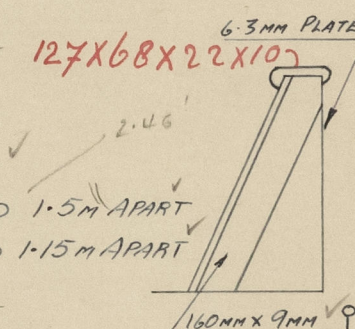 6.3MM PLATE
127X68X22X10
2.46'
1.5M APART
1.15M APART
160MM X 9MM